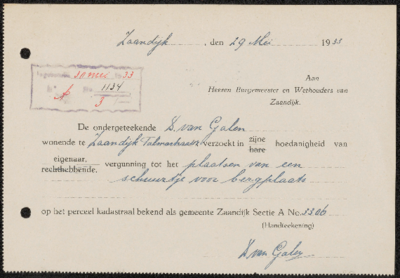 Zaandijk, den 29 Mei 1933
Aan
Heeren Burgemeester en Wethouders van
Zaandijk.
Ingekomen 30 mei 33
No. 1134
A 3
De ondergeteekende D. van Galen
wonende te Zaandijk Talmastraat verzoekt in zijne hoedanigheid van
hare
eigenaar, vergunning tot het plaatsen van een
rechthebbende,
schuurtje voor bergplaats
op het perceel kadastraal bekend als gemeente Zaandijk Sectie A No. 3306
(Handteekening)
D. van Galen